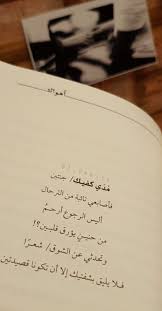 أهواك
خذي كفيك/ جنتين
فأصابعي تائبة من الترحال
أليس الرجوع أرحمُ
من حنينٍ يؤرق قلبين؟!
وتحدثي عن الشوق/ شعراً
فلا يليق بشفتيك إلا أن تكونا قصيدتين